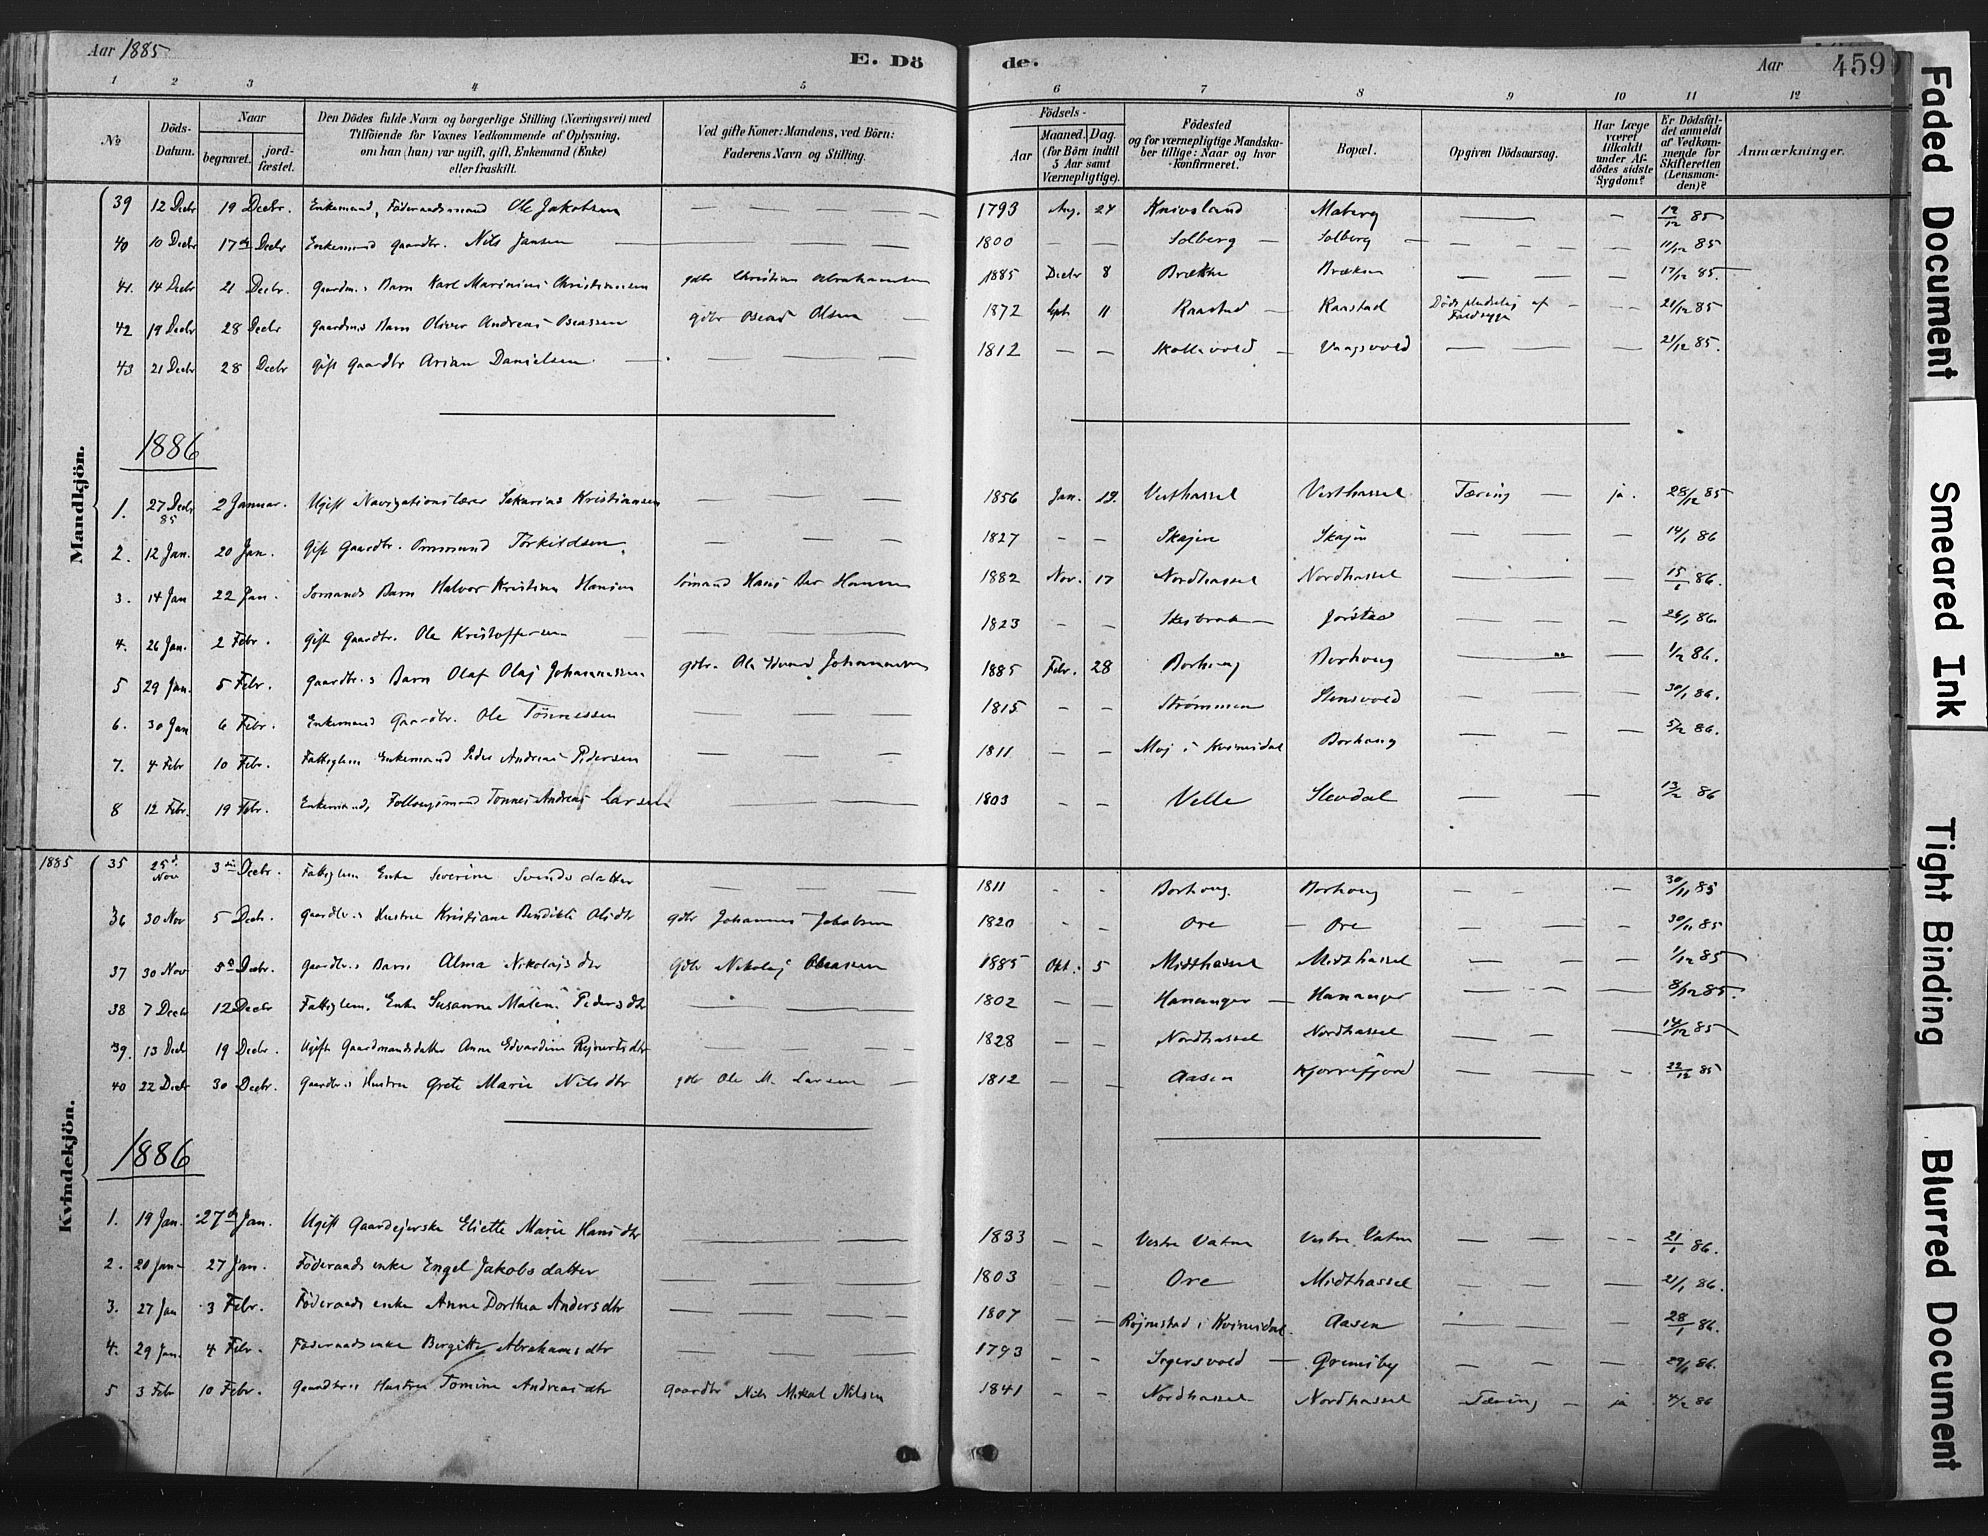 Aar 1885
E. Dö
de.
Aar
459
1 2 3 4 5 6 7 8 9 10 11 12
No
Döds-Datum.
Naar
begravet.
jord-fæstet.
Den Dödes fulde Navn og borgerlige Stilling (Næringsvei) med
Tilföiende for Voxnes Vedkommende af Oplysning,
om han (hun) var ugift, gift, Enkemand (Enke)
eller fraskilt.
Ved gifte Koner: Mandens, ved Börn:
Faderens Navn og Stilling.
Födsels-
Aar
Maaned. Dag.
(for Börn indtil
5 Aar samt
Værnepligtige).
Födested
og for værnepligtige Mandska-
ber tillige: Naar og hvor
konfirmeret.
Bopæl.
Opgiven Dödsaarsag.
Har Læge
været
tilkaldt
under Af-
dödes sidste
Sygdom?
Er Dödsfal-
det anmeldt
af Vedkom-
mende for
Skifteretten
(Lensman-
den)?
Anmærkninger.
Mandkjön.
39 12 Decbr 19 Decbr. Enkemand, Föderaadsmand Ole Jakobsen — 1793 Aug. 24 Knivsland Maberg — — 19/12 85
40 10 Decbr 17de Decbr Enkemand gaardbr. Nils Jansen — 1800 — — Solberg — Solberg — — — 11/12 85
41. 14 Decbr 21 Decbr. gaardm.s Barn Karl Marinius Christiansen gdbr Christian Abrahamsen 1885 Decbr 8 Brække Brække — — 17/12 85.
42 19 Decbr 28 Decbr gaardm.s Barn Oliver Andreas Oseassen gdbr Oseas Olsen — 1872 Spt 11 Raastad — Raastad — — 21/12 85
43 21 Decbr 28 Decbr gift gaardbr Arian Danielsen. — 1812 — — Skollevold — Vaagsvold — — 21/12 85.
1886
1. 27 Decbr 85 2 Januar. Ugift Navigationslærer Sakarias Kristiansen — 1856 Jan. 19. Vesthassel Vesthassel. Tæring — ja. 28/12 85
2. 12 Jan. 20 Jan. Gift Gaardbr. Ommund Törkildsen. — 1827 — — Skajen Skajen — — 14/1 86
3. 14 Jan 22 Jan. Sömands Barn Halvor Kristian Hansen Sömand Hans 1882 Nov. 17 Nordhassel Nordhassel — — 15/1 86.
4. 26 Jan. 2 Febr. gift gaardbr. Ole Kristoffersen — 1823 — — Jörstad — — 26/1 86.
5 29 Jan. 5 Febr. gaardbr.s Barn Olaf Olaj Johannessen gdbr. Ole Edvard Johannessen 1885 Febr. 28 Borhaug Borhaug — — 1/2 86.
6. 30 Jan 6 Febr. Enkemand gaardbr. Ole Tönnessen — 1815 — — Strömmen Stensvold — — 30/1 86.
7. 4 Febr 10 Febr. Fattiglem Enkemand Peder Andreas Pedersen — 1811 — — Moj i Kvinesdal Borhaug — — 5/2 86.
8 12 Febr. 19 Febr. Enkemand, Tönnes Andreas Larsen — 1803 — — Velle Slevdal — — 13/2 86
Kvindekjön.
1885 35 25de Nov 3die Decbr. Fattiglem Enke Severine Svendsdatter — 1811 — — Borhaug. Borhaug — — 30/11 85
36 30 Nov 5 Decbr. gaardbr.s Hustru Kristiane Bendikte Olsdtr gdbr Johannes Jakobsen 1820 — — Ore — Ore — — 30/11 85
37 30 Nov 5te Decbr. gaardbr.s Barn Alma Nikolajsdtr gdbr Nikolaj Oseasen 1885 Okt. 5 Midthassel Midthassel — — 1/12 85
38 7 Decbr 12 Decbr Fattiglem. Enke Susanne Malene Pedersdtr — 1802 — — Hananger — Hananger — — 8/12 85.
39. 13 Decbr 19 Decbr. Ugift Gaardmandsdatter Anne Edvardine Rejnertsdtr — 1828 — — Nordhassel Nordhassel — — 14/12 85
40 22 Decbr 30 Decbr. gaardbr.s Hustru Grete Marie Nilsdtr gdbr Ole M. Larsen — 1812 — — Aasen Kjörrefjord — — 22/12 85
1886
1. 19 Jan. 27de Jan. Ugift Gaardejerske Eliette Marie Hansdtr — 1833 — — Vestre Vatne Vestre Vatne — — 21/1 86.
2. 20 Jan 27 Jan. Föderaadsenke Engel Jakobsdatter — 1803 — — Ore Midthassel — — 21/1 86.
3. 27 Jan 3 Febr. Föderaadsenke Anne Dorthea Andersdtr — 1807 — — Röjnestad i Kvinesdal. Aasen — — 28/1 86.
4. 29 Jan. 4 Febr. Föderaadsenke Bergitte Abrahamsdtr — 1793 — — Segersvold — Grimsby — — 29/1 86.
5 3 Febr 10 Febr. gaardbr.s Hustru Tomine Andreasdtr gaardbr Nils Mikal Nilsen 1841 — — Nordhassel Nordhassel Tæring — ja 4/2 86
Faded Document
Smeared Ink
Tight Binding
Blurred Document